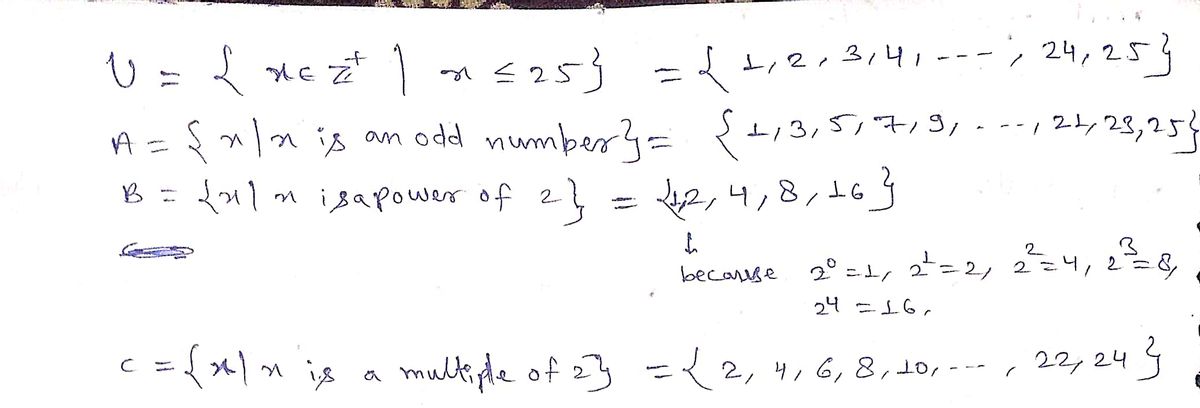 U = { x ∈ Z⁺ | x ≤ 25} = { 1, 2, 3, 4, ----, 24, 25}
A = { x | x is an odd number} = { 1, 3, 5, 7, 9, ----, 21, 23, 25}
B = {x | x is a power of 2} = {1, 2, 4, 8, 16}
↓
because 2⁰ = 1, 2¹ = 2, 2² = 4, 2³ = 8,
24 = 16,
C = {x | x is a multiple of 2} = { 2, 4, 6, 8, 10, ---, 22, 24 }